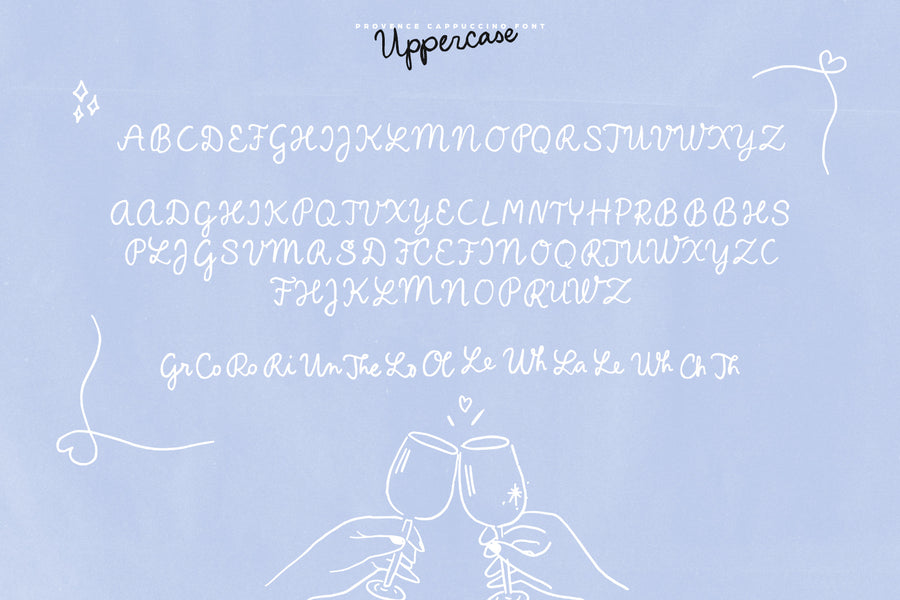 PROVENCE CAPPUCCINO FONT
Uppercase
ABCDEFGHIJKLMNOPQRSTUVWXYZ
AADGHIKPQTVXYECLMNTYHPRBBBHS
PLJGSVMRSDFCEFINOQRTUWXYZC
FHJKLMNOPRUWZ
Gr Co Ro Ri Un The Lo Ol Le Wh La Le Wh Ch Th